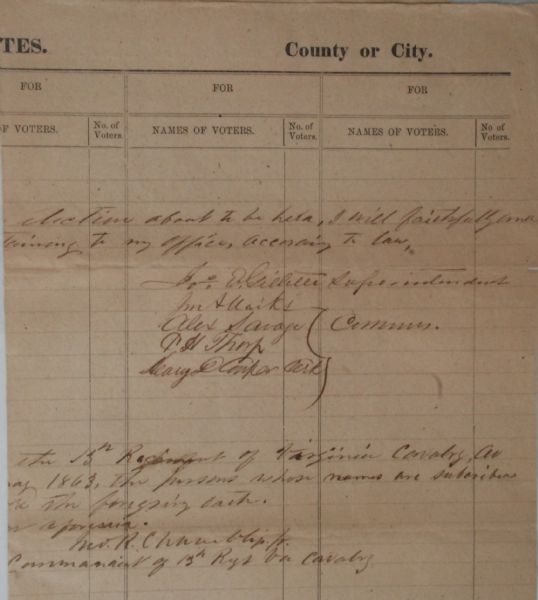 TES. County or City.
FOR FOR FOR
OF VOTERS. No. of Voters. NAMES OF VOTERS. No. of Voters. NAMES OF VOTERS. No of Voters.
election about to be held, I will faithfully
to my office, according to law,
Superintendent
Alex Savage Commrs.
P H Thorp
Cooper Clerk
the 13th Regiment of Virginia Cavalry,
1863, the persons whose names are subscribed
the foregoing oath.
aforesaid.
Jno. R. Chambliss, Jr.
Commandant of 13th Regt Va Cavalry